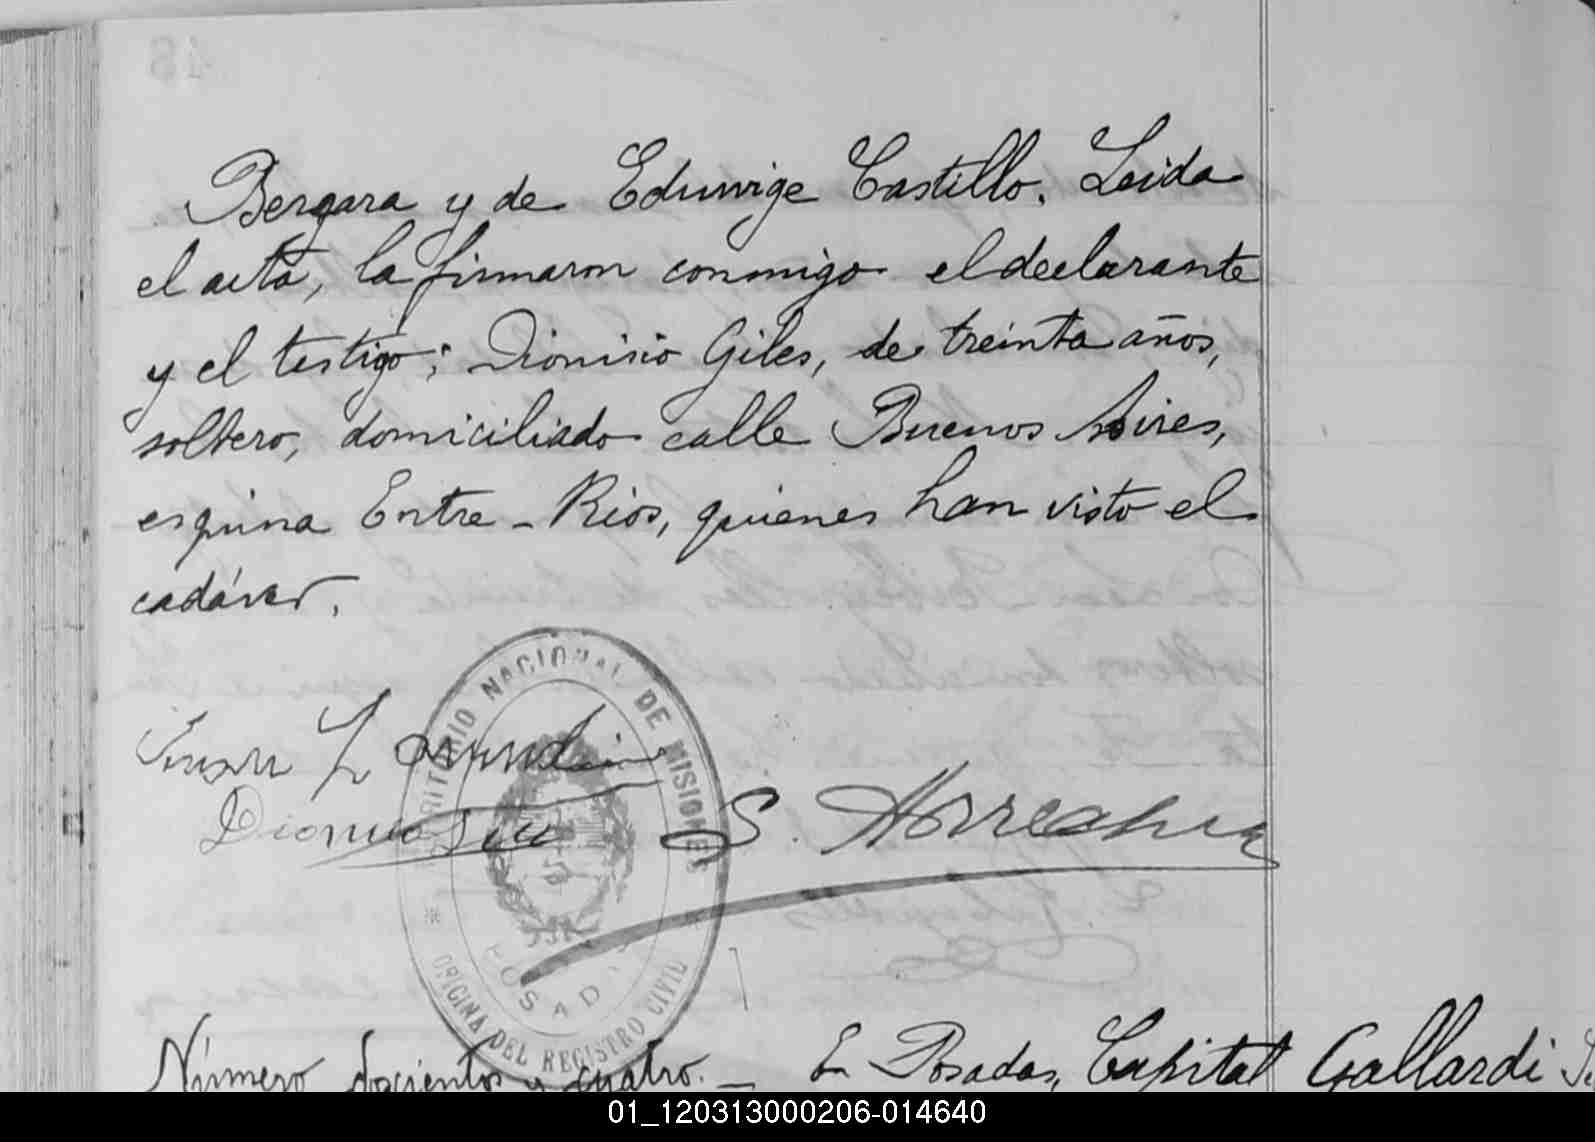 Bergara y de Eduvige Castillo. Leida
el acta, la firmaron conmigo el declarante
y el testigo; Dionisio Giles, de treinta años,
soltero, domiciliado calle Buenos Aires,
esquina Entre-Rios, quienes han visto el
cadáver.
TERRITORIO NACIONAL DE MISIONES
Juan
Dionicio
S.
POSADAS
OFICINA DEL REGISTRO CIVIL
Número doscientos y cuatro. — En Posadas, Capital
Gallardi
01_120313000206-014640